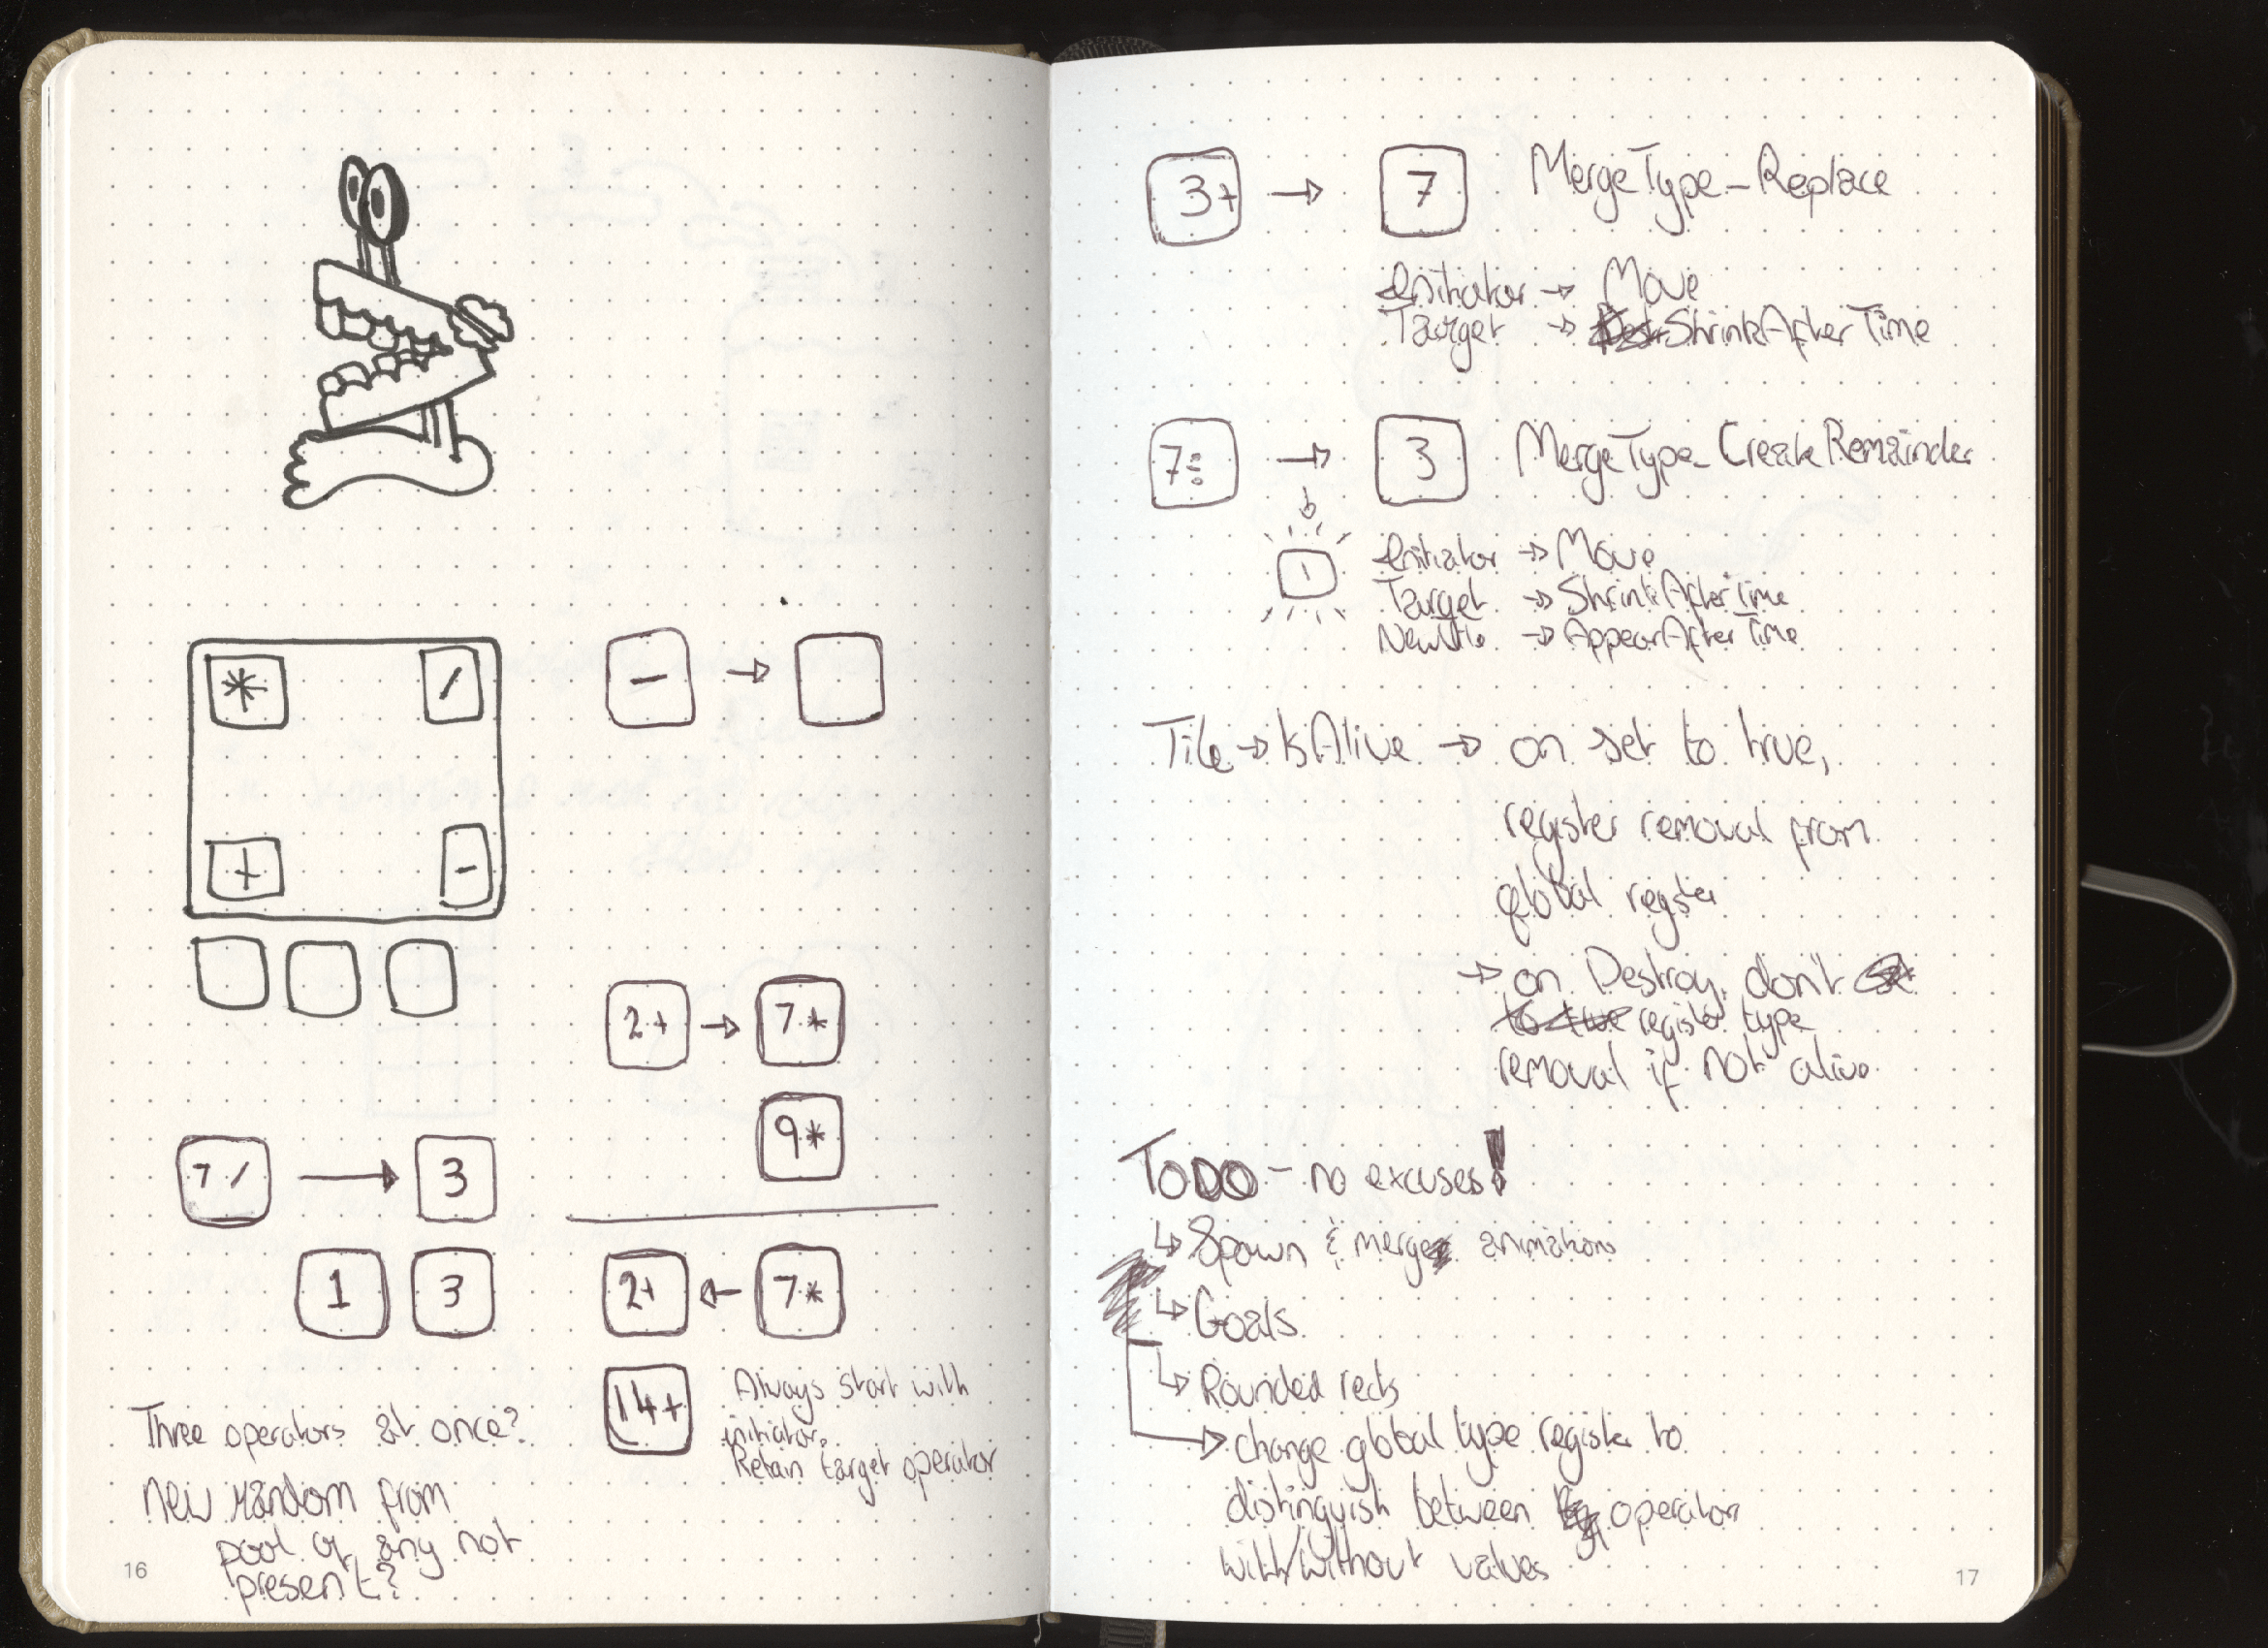 * /
+ -
- →
2+ → 7*
9*
7/ → 3
1 3
2+ ← 7*
14+
Always start with
initiator.
Retain target operator
Three operators at once?
New random from
pool of any not
present?
16
3+ → 7 MergeType_Replace
Initiator → Move
Target → ShrinkAfterTime
7÷ → 3 MergeType_CreateRemainder
1
Initiator → Move
Target → ShrinkAfterTime
NewTile → AppearAfterTime
Tile → IsAlive → on set to true,
register removal from
global register
→ on Destroy, don't
register type
removal if not alive
TODO - no excuses!
↳ Spawn & merge animations
↳ Goals
↳ Rounded rects
→ change global type register to
distinguish between operator
with/without values
17